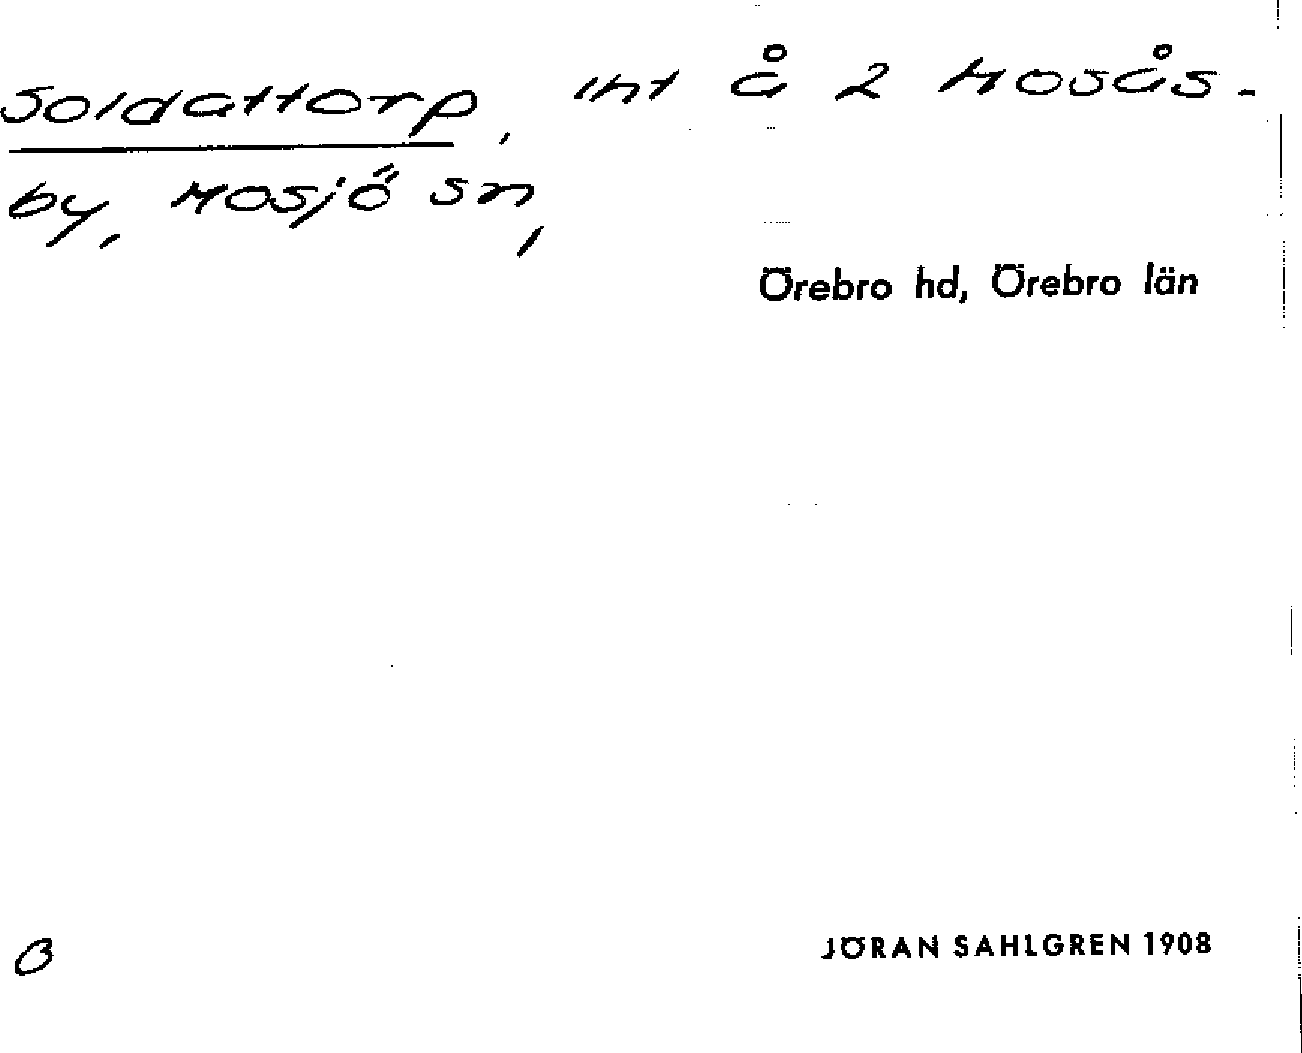 Soldattorp, int å 2 Mosås-
by, Mosjö sn,
Örebro hd, Örebro län
B
JÖRAN SAHLGREN 1908